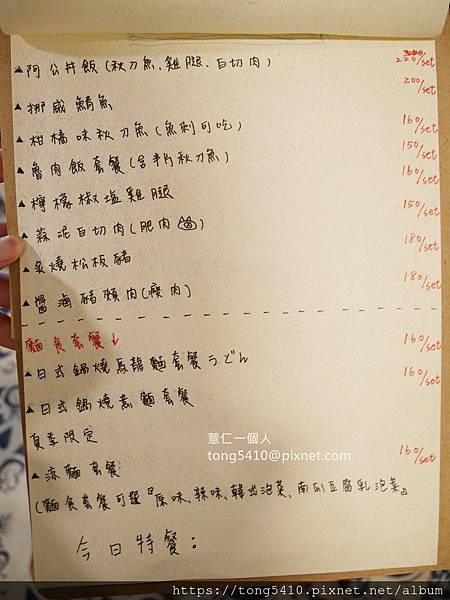 ▲阿公丼飯(秋刀魚,雞腿、白切肉) 220/set
▲挪威鯖魚 200/set
▲柑橘味秋刀魚(魚刺可吃) 160/set
▲魯肉飯套餐(含半片秋刀魚) 150/set
▲檸檬椒塩雞腿 160/set
▲蒜泥白切肉(肥肉) 150/set
▲炙燒松板豬 180/set
▲醬滷豬頰肉(瘦肉) 180/set
麵食套餐↓
▲日式鍋燒烏龍麵套餐うどん 160/set
▲日式鍋燒意麵套餐 160/set
夏季限定
▲涼麵套餐 160/set
(麵食套餐可選『原味、辣味、韓式泡菜、南瓜豆腐乳泡菜』
今日特餐:
薏仁一個人
tong5410@pixnet.com
https://tong5410.pixnet.net/album